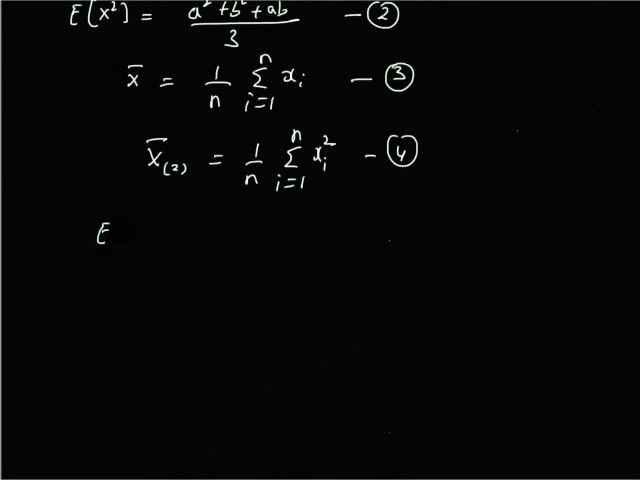 E[X²] = (a² + b² + ab)/3 — ②
x̄ = 1/n Σ_{i=1}^{n} xᵢ — ③
X̄₍₂₎ = 1/n Σ_{i=1}^{n} xᵢ² — ④
E